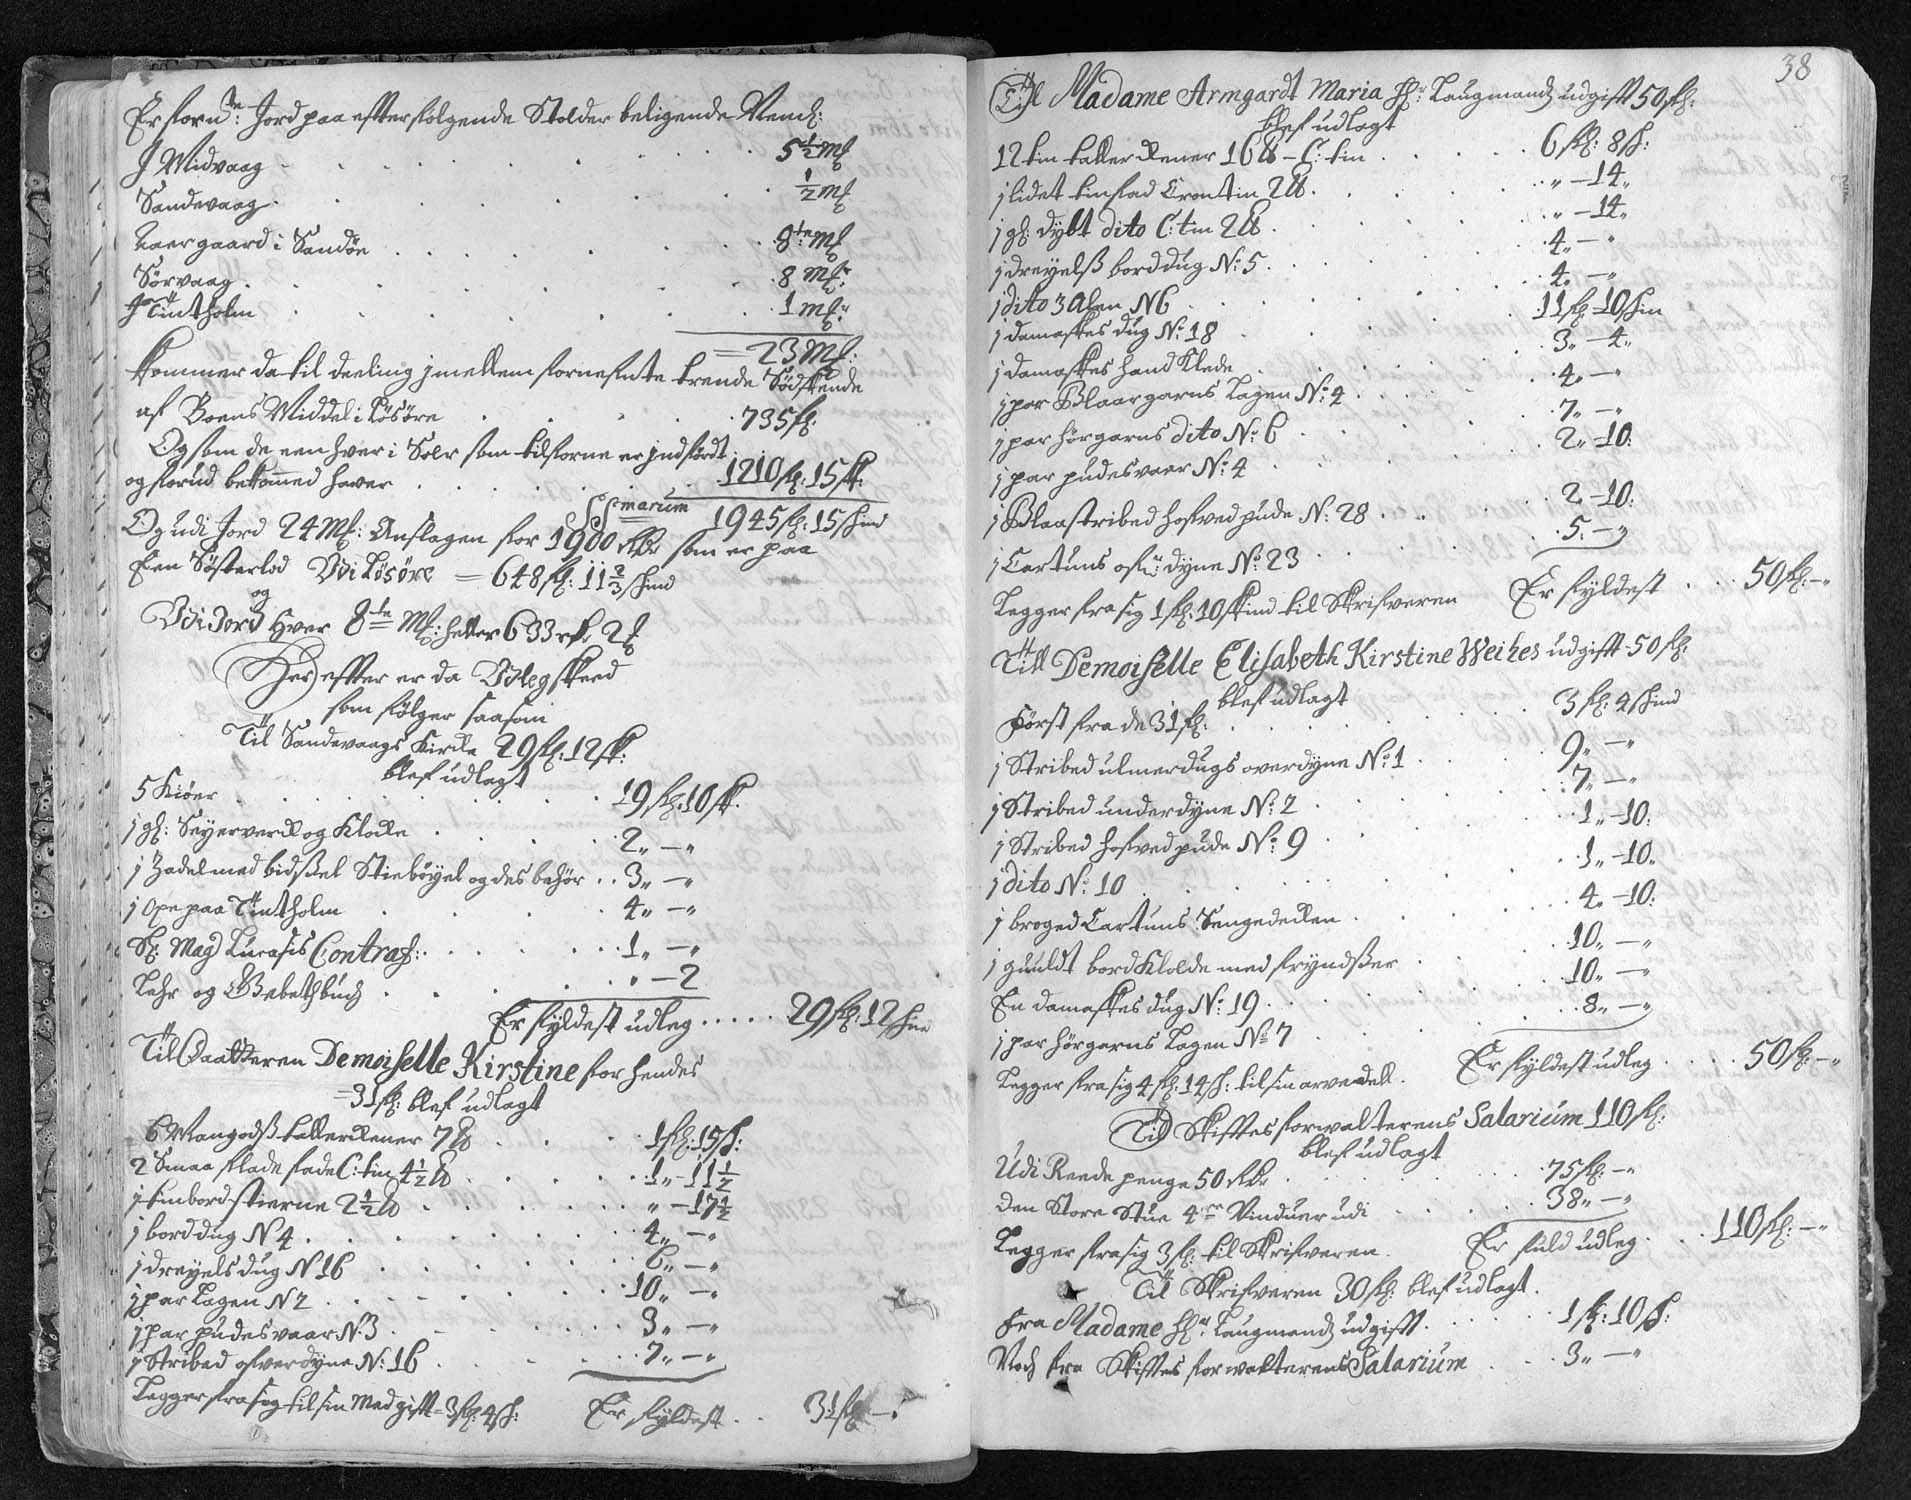 Er fornte: Jord paa efterfølgende Stæder beligende Neml:
J Midvaag 5½ Mk
Sandevaag ½ Mk
Naergaard i Sandøe 8te Mk
Sørvaag 8 Mkr
J Tintholm 1 Mkr
= 23 Mk:
kommer da til deeling jmellem fornefnte trende Sødskende
af Boens Middel i Løsøre 735 fl:
Og som de een hver i Sær som tilforne er jndført
og forud bekommed haver 1210 fl: 15 sk:
Summarum 1945 fl: 15 skind
Og udi Jord 24 Mk: Anslagen for 1900 Rdr som er paa
Een Søsterlod Udi Løsøre = 648 fl: 11⅔ skind
og
Udi Jord hver 8te Mk: heller 633 rdr 2 mk
Her effter er da Udleg skeed
som følger saasom
Til Sandevaags Kirke 29 fl: 12 sk:
blef udlagt
5 Kiøer 19 fl: 10 sk.
1 gl: Seyerverk og Klocke 2„ — „
1 Zadel med bidssel Stiebøyel og des behør 3„ — „
1 Ope paa Tintholm 4„ — „
Sl: Mag Lucasis Contraf: 1„ — „
Lehr og Bebethbuch „ — 2
Er fyldest udleg 29 fl: 12 skin
Til Daatteren Demoiselle Kirstine for hendes
31 fl: blef udlagt
6 Mangods tallerkener 7 ℔ 1 fl: 15 s:
2 Smaa flade fade C: tin 4½ ℔ 1„ — 11½
1 tinbord stierne 2½ ℔ „ — 17½
1 bord dug N 4 4„ — „
1 dreyels dug N 16 6„ — „
1 par Lagen N 2 10„ — „
1 par pudesvaar N: 3 3„ — „
1 Stribed ofverdyne N: 16 7„ — „
Legger fra sig til sin Medgift = 3 fl: 4 s: Er fyldest 31 fl: — „
38
Till Madame Armgardt Maria Hr: Laugmands udgift 50 fl:
blef udlagt
12 tin tallerkener 16 ℔ — C: tin 6 fl: 8 s:
1 lidet tinfad Crontin 2 ℔ „ — 14„
1 gl: dybt dito C: tin 2 ℔ „ — 14„
1 dreyelss borddug No: 5 4„ — „
1 dito 3 Alen N 6 4„ — „
1 damaskes dug No: 18 11 fl: 10 skin
1 damaskes hand Klede 3„ — 4„
1 par Blaargarns Lagen No: 4 4„ — „
1 par hørgarns dito No: 6 7„ — „
1 par pudesvaar No: 4 2„ — 10:
1 Blaastribed hofved pude N: 28 2„ — 10:
1 Cartuns ofr: dyne No: 23 5„ — „
Legger fra sig 1 fl: 10 skind til Skrifveren Er fyldest 50 fl: — „
Till Demoiselle Elisabeth Kirstine Weihes udgift 50 fl:
blef udlagt
Først fra de 31 fl: 3 fl: 4 skind
1 Stribed ulmerdugs overdyne No: 1 9„ — „
1 Stribed underdyne No: 2 7„ — „
1 Stribed hofved pude No: 9 1„ — 10:
1 dito N: 10 1„ — 10„
1 broged Cartuns Sengedecken 4„ — 10:
1 guuldt bord Klede med fryndsser 10„ — „
En damaskes dug No: 19 10„ — „
1 par hørgarns Lagen No 7 8„ — „
Legger fra sig 4 fl: 14 s: til sin arvedell. Er fyldest udleg 50 fl: — „
Till Skiftes forvalterens Salarium 110 fl:
blef udlagt
Udi Reede penge 50 Rdr 75 fl: — „
den Store Stue 4re Vinduer udi 38„ — „
Legger fra sig 3 fl: til Skrifveren. Er fuld udleg 110 fl: — „
Til Skrifveren 30 fl: blef udlagt.
Fra Madame Hr: Laugmands udgift 1 fl: 10 s:
Noch fra Skiftes forvalterens Salarium 3„ — „